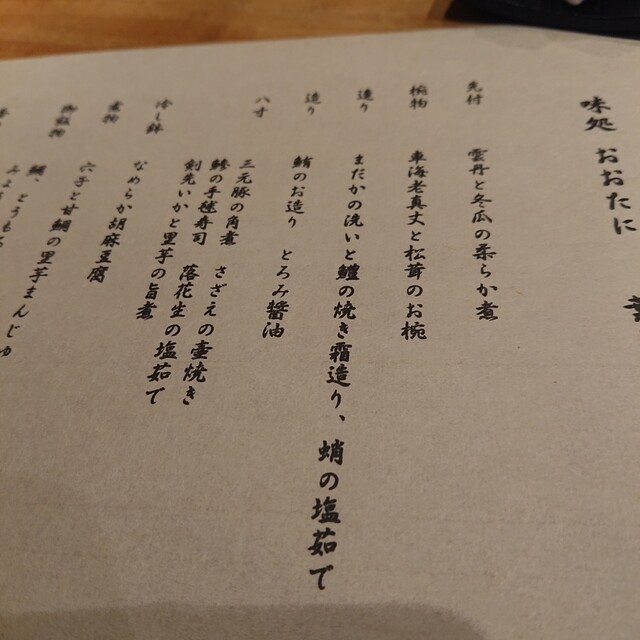 味処 おおたに
先付 雲丹と冬瓜の柔らか煮
椀物 車海老真丈と松茸のお椀
造り まだかの洗いと鱧の焼き霜造り、蛸の塩茹で
造り 鮪のお造り とろみ醤油
八寸 三元豚の角煮 さざえの壷焼き
鯵の手毬寿司 落花生の塩茹で
剣先いかと里芋の旨煮
冷し鉢 なめらか胡麻豆腐
煮物 穴子と甘鯛の里芋まんじゅ
御飯物 鯛、とうもろ
みょう